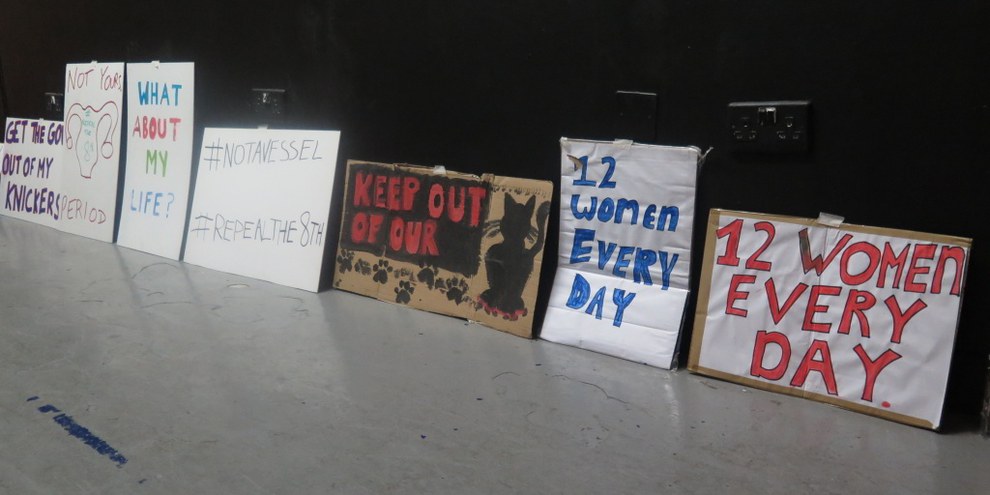 GET THE GOV
OUT OF MY
KNICKERS
NOT YOURS
8th
PERIOD
WHAT
ABOUT
MY
LIFE?
#NOTAVESSEL
#REPEALTHE8TH
KEEP OUT
OF OUR
12
Women
EVERY
DAY
12 WOMEN
EVERY
DAY.